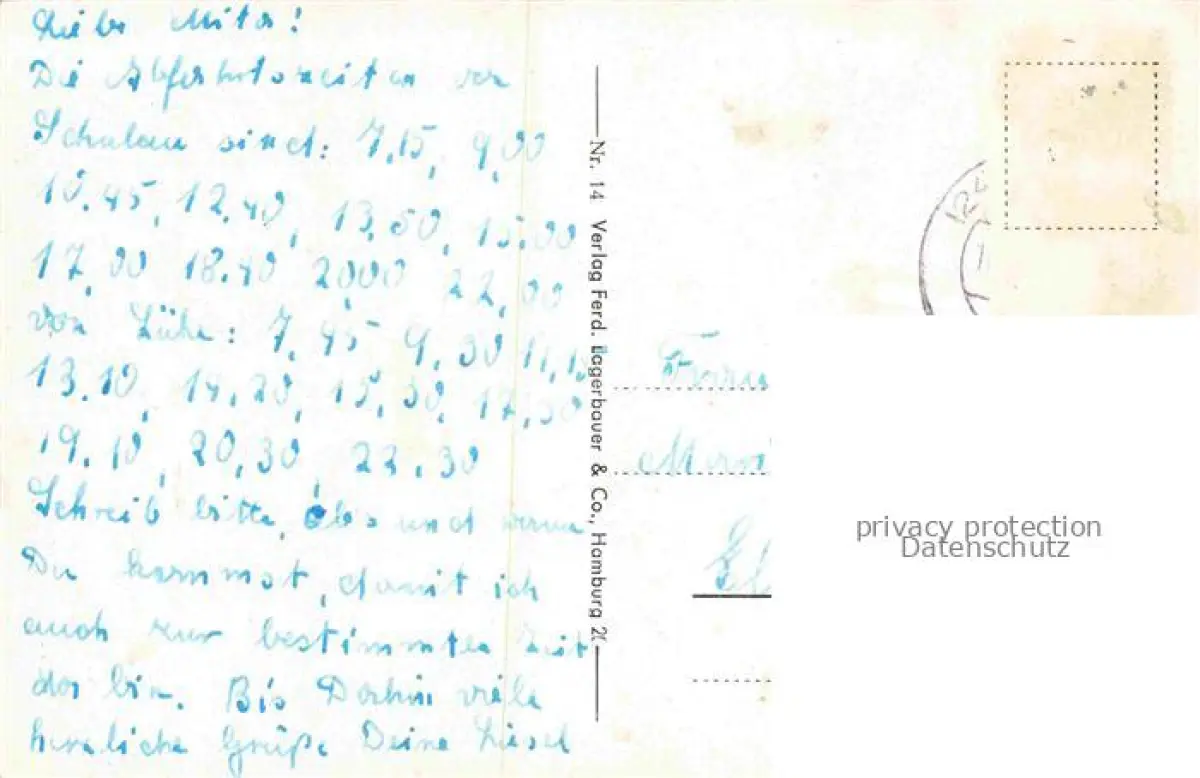 Liebe Mita!
Die Abfahrtszeiten von
Schulau sind: 7,15, 9,00
10.45, 12.40, 13,50, 15.00
17,00 18.40 20,00 22,00
von Lühe: 7,45 9,30 11,15
13.10, 14.20, 15,30, 17,30
19.10, 20,30, 22.30
Schreib bitte, ob und wann
Du kommst, damit ich
auch zur bestimmten Zeit
da bin. Bis Dahin viele
herzliche Grüße Deine Liesel
Nr. 14 Verlag Ferd. Lagerbauer & Co., Hamburg 2
privacy protection
Datenschutz